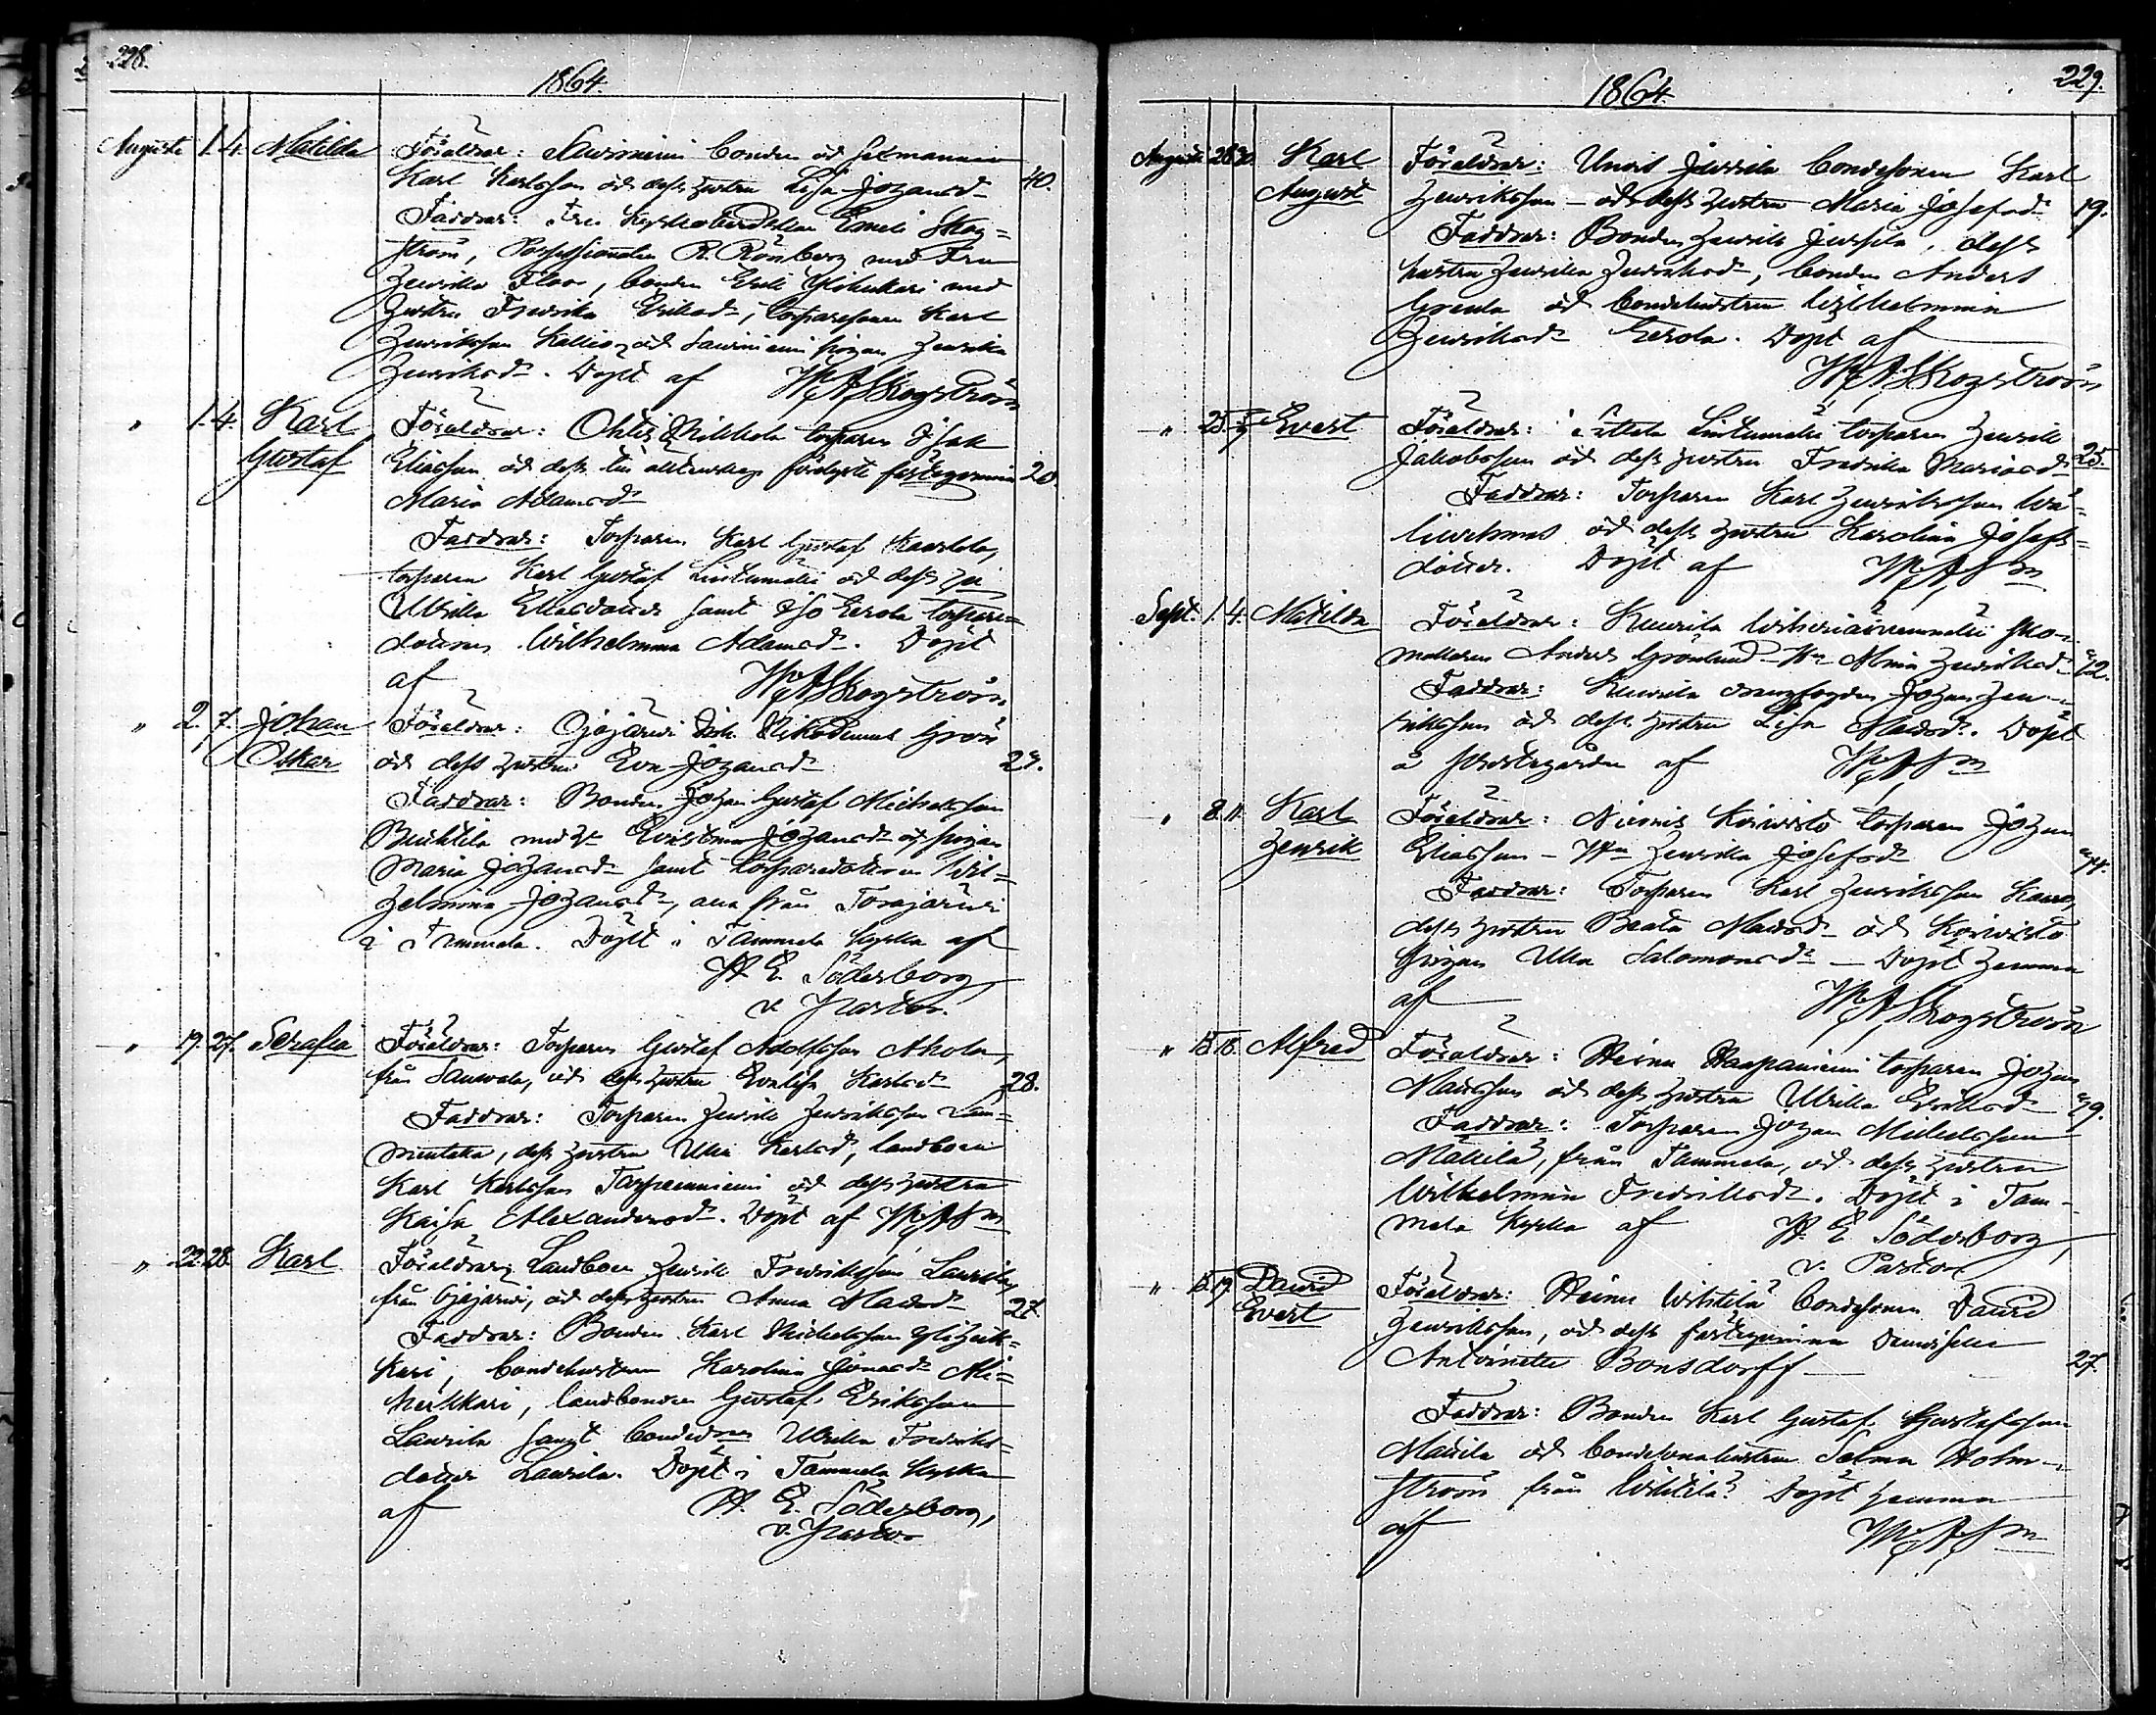 228.
1864.
Augusti 1. 4. Matilda Föräldrar: Saviniemi bonden och sexmannen
Karl Karlsson och dess hustru Lisa Johansd. 40.
Faddrar: Fru Emeli Skog=
ström, Possessionaten R. Rönberg med Fru
Floor, bonden Erik med
hustru Fredrika Eriksd., torparesonen Karl
Henriksson Kallio och Saviniemi pigan Henrika
Henriksd. Döpt af W. A. Skogström
" 1. 4. Karl Föräldrar: torparen Isak
Gustaf Eliasson och dess fästeqvinna 20
Maria Adamsd.
Faddrar: Torparen Karl Gustaf Kaarlola,
torparen Karl Gustaf Lintumäki och dess
Ulrika Eliasdotter samt Iso Eerola torpare=
dottren Wilhelmina Adamsd. Döpt
af W. A. Skogström
" 2. 7. Johan Föräldrar: Ojajärvi Nikodemus Grön
Oskar och dess hustru Eva Johansd. 29.
Faddrar: Bonden Johan Gustaf Michelsson
med Johansd. och pigan
Maria Johansd. samt torparedottren Wil=
helmina Johansd., alla från Torajärvi
i Tammela. Döpt i Tammela kyrka af
W. E. Söderborg,
v. Pastor.
" 19. 27. Serafia Föräldrar: Torparen Gustaf Adolfsson Ahola,
från Sauvala, och dess hustru Evalisa Karlsd. 28.
Faddrar: Torparen Henrik Henriksson Lam=
mintaka, dess hustru Ulla Karlsd., landbon
Karl Karlsson Torpanniemi och dess hustru
Kaisa Alexandersd. Döpt af W. A. S—m
" 22. 28. Karl Föräldrar: Landbon Henrik Fredriksson Laurila,
från Ojajärvi, och dess hustru Anna Mattsd. 27.
Faddrar: Bonden Karl Michelsson
kari, bondehustrun Karolina Ali=
, landbonden Gustaf Eriksson
Laurila samt Ulrika Fredriks=
dotter Laurila. Döpt i Tammela kyrka
af W. E. Söderborg,
v. Pastor
1864. 229.
Augusti 28. 30. Karl Föräldrar: Jussila bondesonen Karl
August Henriksson och dess hustru Maria Josefsd. 19.
Faddrar: Bonden Henrik Jussila, dess
hustru Henrika Henriksd., bonden Anders
och bondehustrun Wilhelmina
Henriksd. Eerola. Döpt af
W. A. Skogström
" 25. Evert Föräldrar: Lintumäki torparen Henrik
Jakobsson och dess hustru Fredrika Mariasd. 25.
Faddrar: Torparen Karl Henriksson Wä=
och dess hustru Karolina Josefs=
dotter. Döpt af W. A. S—m
Sept. 1. 4. Matilda Föräldrar: Kuurila sko=
makaren Anders Grönlund — Hu Henriksd. 42.
Faddrar: Kuurila drängfogden Johan Hen=
riksson och dess hustru Lisa Mattsd. Döpt
å Prestegården af W. A. S—m
" 8. 11. Karl Föräldrar: Koivisto torparen Johan
Henrik Eliasson — Hu Henrika Josefsd.
Faddrar: Torparen Karl Henriksson
dess hustru Beata Mattsd. och Koivisto
pigan Ulla Salomonsd. — Döpt hemma
af W. A. Skogström
" 15. 18. Alfred Föräldrar: Heinu Haapaniemi torparen Johan
Mattsson och dess hustru Ulrika Eriksd. 29.
Faddrar: Torparen Johan Michelsson
Mattila, från Tammela, och dess hustru
Wilhelmina Fredriksd. Döpt i Tam=
mela kyrka af W. E. Söderborg,
v. Pastor
" 15. 19. David Föräldrar: Heinu bondesonen David
Evert Henriksson, och dess fästeqvinna Demoiselle
Antoinette Bonsdorff — 27.
Faddrar: Bonden Karl Gustaf Gustafsson
Mattila och bondesonahustrun Selma Holm=
ström från Döpt hemma
af W. A. S—m